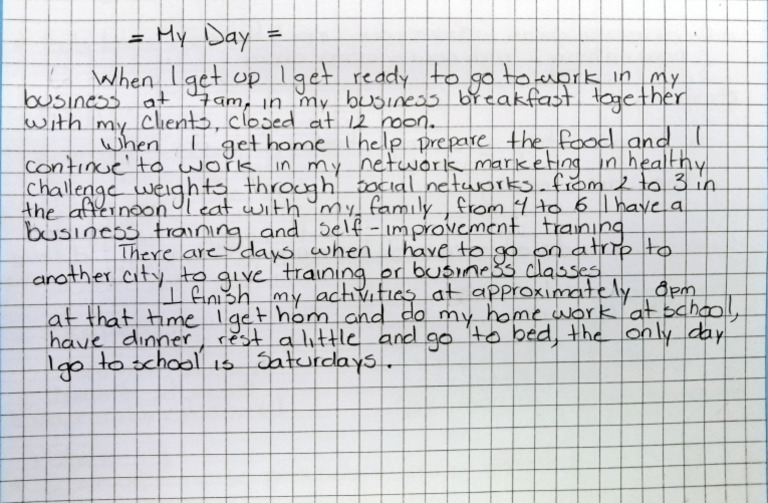 = My Day =
When I get up I get ready to go to work in my
business at 7am, in my business breakfast together
with my clients, closed at 12 noon.
When I get home I help prepare the food and I
continue to work in my network marketing in healthy
challenge weights through social networks. from 2 to 3 in
the afternoon I eat with my family, from 4 to 6 I have a
business training and self-improvement training
There are days when I have to go on a trip to
another city to give training or business classes
I finish my activities at approximately 8pm
at that time I get hom and do my home work at school,
have dinner, rest a little and go to bed, the only day
I go to school is Saturdays.